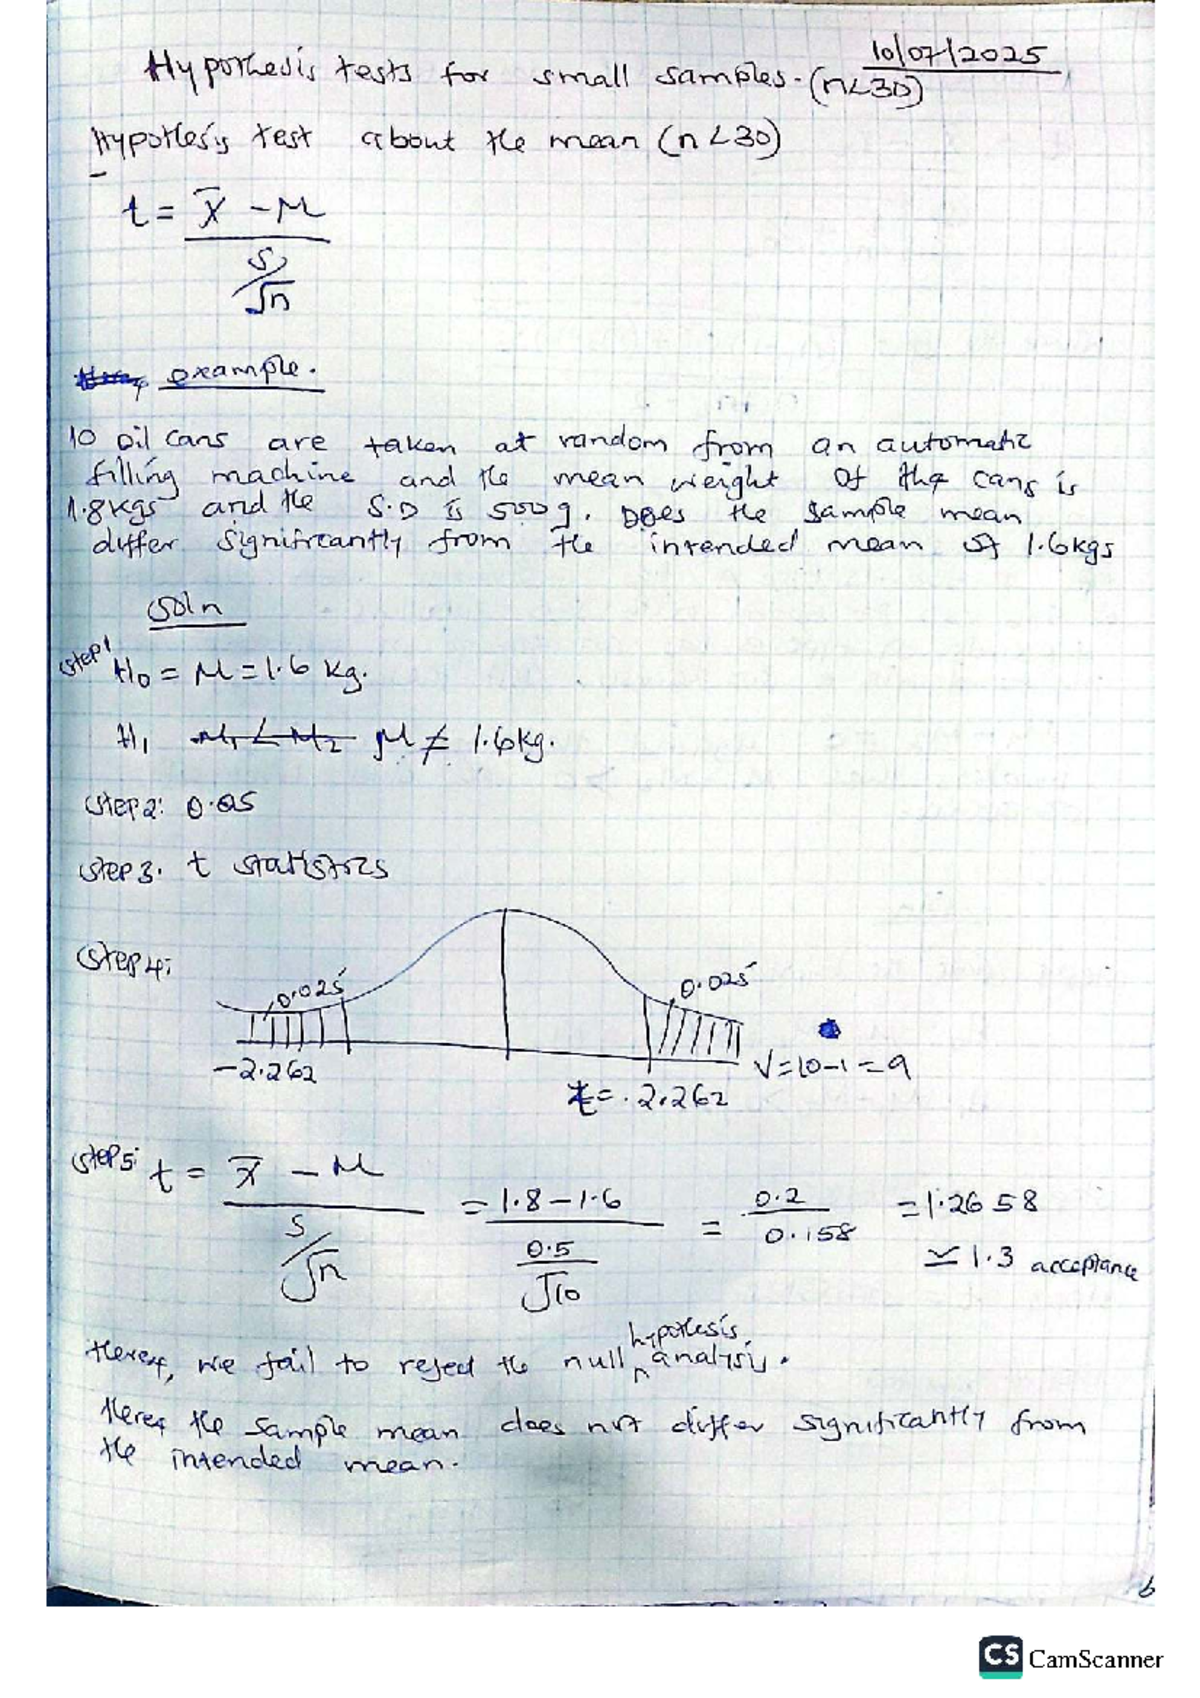 10/07/2025
Hypothesis tests for small samples. (n<30)
Hypothesis test about the mean (n<30)
t = x̄ - μ
s/√n
example.
10 oil cans are taken at random from an automatic
filling machine and the mean weight of the cans is
1.8kgs and the S.D is 500g. Does the sample mean
differ significantly from the intended mean of 1.6kgs
soln
step1 H0 = μ = 1.6 kg.
H1 μ1 < μ2 μ ≠ 1.6kg.
step2: 0.05
step3. t statistics
step4:
0.025 0.025
-2.262 t = 2.262 V=10-1=9
step5: t = x̄ - μ = 1.8-1.6 = 0.2 = 1.2658
s/√n 0.5/√10 0.158 ≃ 1.3 acceptance
hypothesis
we fail to reject the null analysis.
the sample mean does not differ significantly from
the intended mean.
6
CS CamScanner